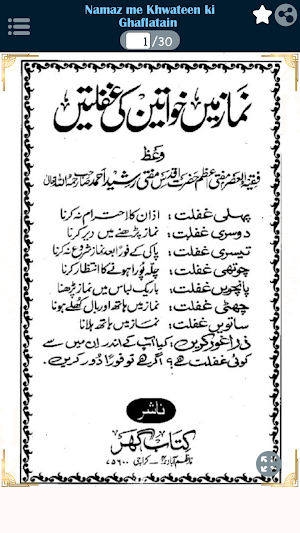 Namaz me Khwateen ki
Ghaflatain
1/30
نماز میں خواتین کی غفلتیں
وعظ
فقیہ العصر مفتی اعظم حضرت اقدس مفتی رشید احمد صاحب رحمہ اللہ تعالیٰ
پہلی غفلت: اذان کا احترام نہ کرنا
دوسری غفلت: نماز پڑھنے میں دیر کرنا
تیسری غفلت: پاکی کے فوراً بعد نماز شروع نہ کرنا
چوتھی غفلت: چلہ پورا ہونے کا انتظار کرنا
پانچویں غفلت: باریک لباس میں نماز پڑھنا
چھٹی غفلت: نماز میں ہاتھ اور بال کھلے ہونا
ساتویں غفلت: نماز میں ہاتھ ہلانا
ذرا غور کریں: کیا آپ کے اندر ان میں سے
کوئی غفلت ہے؟ اگر ہے تو فوراً دور کریں.
ناشر
کتاب گھر
ناظم آباد ۴ — کراچی ۷۵۶۰۰